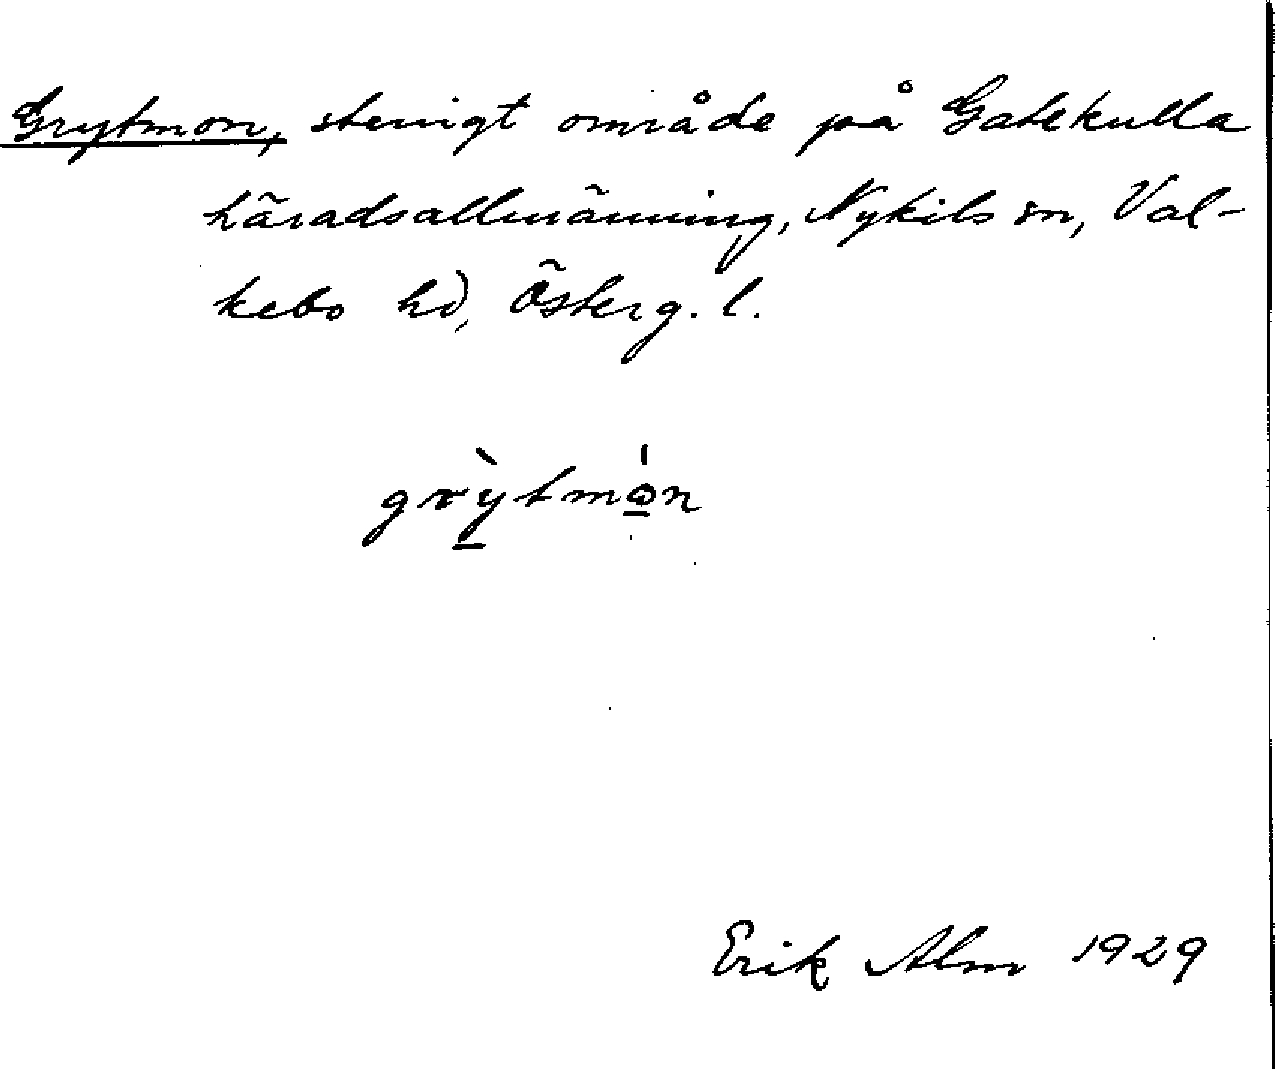 Grytmon, stenigt område på Gatekulla
häradsallmänning, Nykils sn, Val-
kebo hd, Österg. l.
grỳtmón
Erik Alm 1929